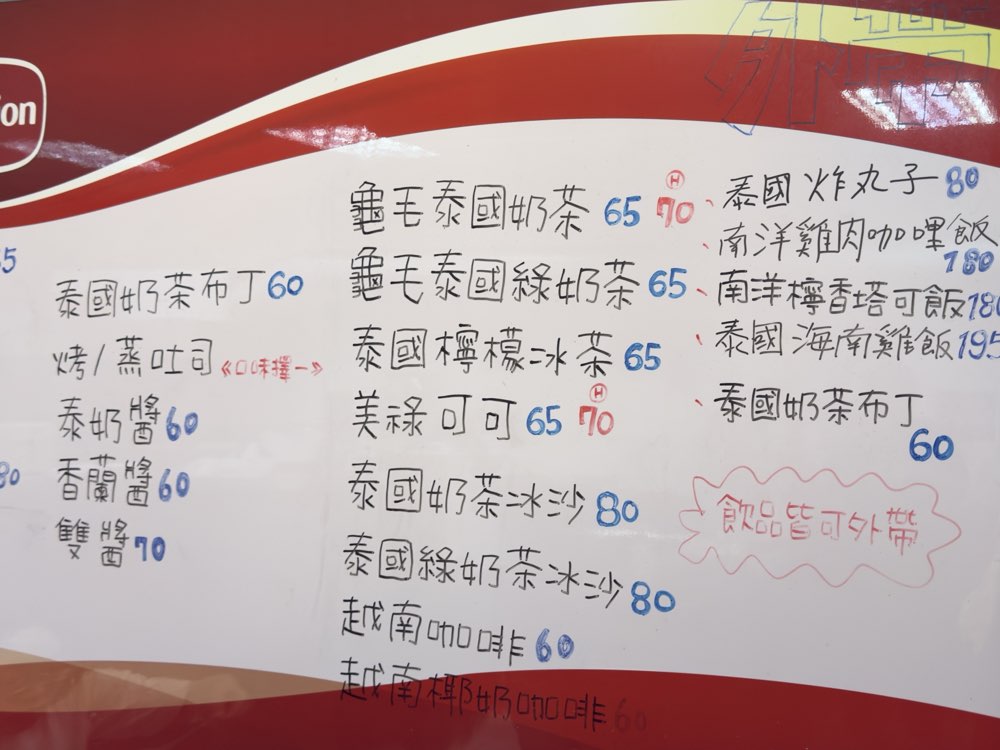 外帶
ion
5
泰國奶茶布丁60
烤/蒸吐司《口味擇一》
泰奶醬60
80
香蘭醬60
雙醬70
龜毛泰國奶茶 65 Ⓗ70
龜毛泰國綠奶茶65
泰國檸檬冰茶65
美祿可可65 Ⓗ70
泰國奶茶冰沙80
泰國綠奶茶冰沙80
越南咖啡60
越南椰奶咖啡60
、泰國炸丸子80
、南洋雞肉咖哩飯
180
、南洋檸香塔可飯180
、泰國海南雞飯195
、泰國奶茶布丁
60
飲品皆可外帶